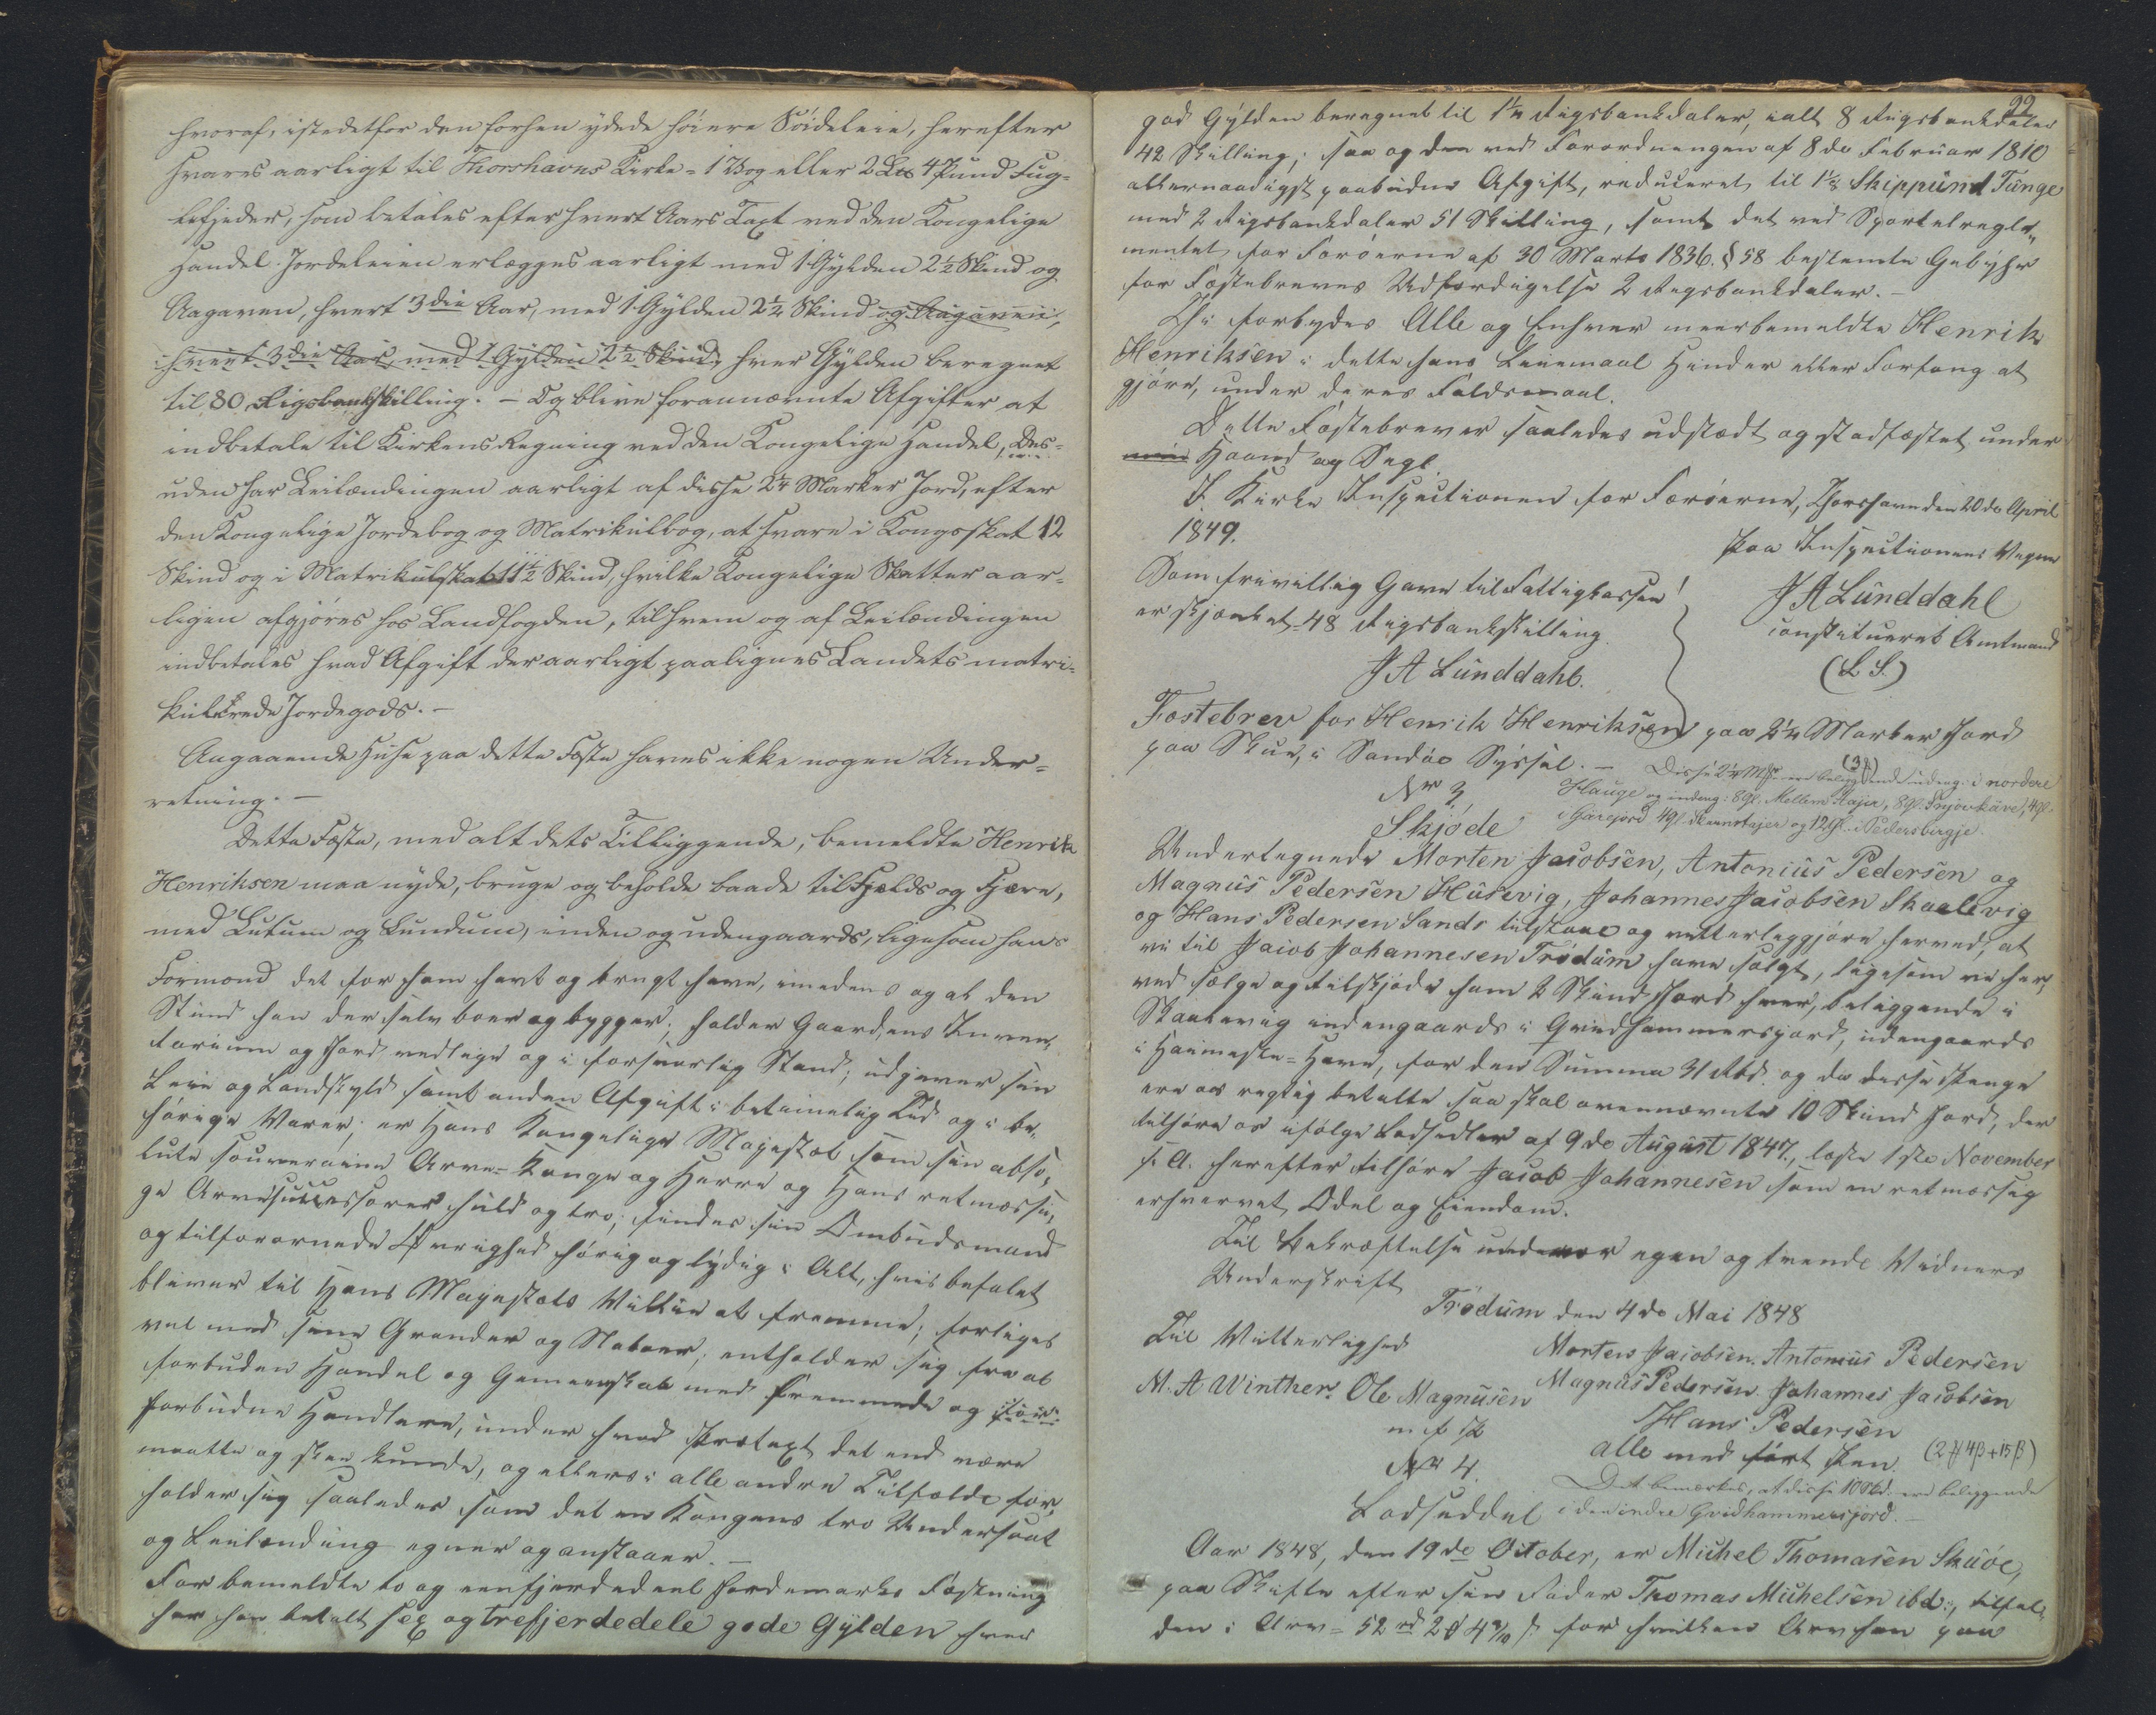 hvoraf, istedetfor den forhen ydede høiere Söideleie, herefter
svares aarligt til Thorshavns Kirke = 1 Vog eller 2 L℔ 4 Pund Fug-
lefjeder, som betales efter hvert Aars Taxt ved den Kongelige
Handel. Jordeleien erlægges aarligt med 1 Gylden 2½ Skind og
Aagaven, hvert 3die Aar, med 1 Gylden 2½ Skind og Aagaven,
hvert 3die Aar, med 1 Gylden 2½ Skind, hver Gylden beregnet
til 80 Rigsbankskilling. – Og blive forannævnte Afgifter at
indbetale til Kirkens Regning ved den Kongelige Handel, Des-
uden har Leilændingen aarligt af disse 2¼ Marker Jord, efter
den Kongelige Jordebog og Matrikulbog, at svare i Kongsskat 12
Skind og i Matrikulskat 11½ Skind, hvilke Kongelige Skatter aar-
ligen afgjøres hos Landfogden, til hvem og af Leilændingen
indbetales hvad Afgift der aarligt paalignes Landets matri-
kulerede Jordegods. –
Angaaende Huse paa dette Fæste haves ikke nogen Under-
retning. –
Dette Fæste, med alt dets Tilliggende, bemeldte Henrik
Henriksen maa nyde, bruge og beholde baade til Fjelds og Fjære,
med Lutum og Lundum, inden og udengaards, ligesom hans
Formand det for ham havt og brugt have, imedens og at den
Stund han der selv boer og bygger; holder Gaardens Inven-
tarium og Jord vedlige og i forsvarlig Stand; udgiver sin
Leie og Landskyld samt anden Afgift i betimelig Tid og i be-
hørige Varer; er Hans Kongelige Majestæt som sin abso-
lute souveraine Arve-Konge og Herre og Hans retmæssi-
ge Arvesuccessorer huld og tro; findes sin Ombudsmand
og tilforornede Øvrighed hørig og lydig i Alt, hvis befalet
bliver til Hans Majestæts Villie at fremme; forliges
vel med sine Grander og Naboer; entholder sig fra at
forbuden Handel og Gemeenskab med Fremmede og for-
forbudne Handlere, under hvad Prætext det end være
maatte og skee kunde, og ellers i alle andre Tilfælde for-
holder sig saaledes som det en Kongens tro Undersaat
og Leilænding egner og anstaaer. –
For bemeldte to og eenfjerdedeel Jordemarks Fæstning
har han betalt sex og trefjerdedele gode Gylden hver
22
god Gylden beregnet til 1¼ Rigsbankdaler, ialt 8 Rigsbankdaler
42 Skilling; saa og den ved Forordningen af 8de Februar 1810
allernaadigst paabudne Afgift, reduceret til 1⅛ Skippund Tunge
med 2 Rigsbankdaler 51 Skilling, samt det ved Sportelregle-
mentet for Færøerne af 30 Marts 1836. § 58 bestemte Gebyhr
for Fæstebrevets Udfærdigelse 2 Rigsbankdaler. –
Thi forbydes Alle og Enhver meerbemeldte Henrik
Henriksen i dette hans Leiemaal Hinder eller Forfang at
gjøre, under deres Faldsmaal.
Dette Fæstebrev er saaledes udstædt og stadfæstet under
min Haand og Segl.
I Kirke Inspectionen for Færøerne, Thorshavn den 20de April
1849.
Paa Inspectionens Vegne
Som frivillig Gave til Fattigkassen
er skjænket 48 Rigsbankskilling.
J A Lunddahl.
J A Lunddahl
constitueret Amtmand
(L S.)
Fæstebrev for Henrik Henriksen paa 2¼ Marker Jord
paa Skuø, i Sandøe Syssel. –
Nr 3
Skjøde
Undertegnede Morten Jacobsen, Antonius Pedersen og
Magnus Pedersen Husevig, Johannes Jacobsen Skaalevig
og Hans Pedersen Sands tilstaae og vitterliggjøre herved, at
vi til Jacob Johannesen Trødum have solgt, ligesom vi her-
ved sælge og tilskjøde ham 2 Skind Jord hver, beliggende i
Skaalevig indengaards i Gridhammersjord, udengaards
i Heimaste-Have, for den Summa 31 Rbd. og da disse Penge
ere os rigtig betalte saa skal ovennævnte 10 Skind Jord, der
tilhøre os ifølge Lodsedler af 9de August 1847, læste 1ste November
s. A. herefter tilhøre Jacob Johannesen som en retmæssig
erhvervet Odel og Eiendom.
Til Bekræftelse under vor egen og tvende Vidners
Underskrift
Trødum den 4de Mai 1848
Til Vitterlighed
M. A Winther. Ole Magnusen
m f P
Morten Jacobsen. Antonius Pedersen
Magnus Pedersen. Johannes Jacobsen
Hans Pedersen
alle med ført Pen.
Det bemærkes, at disse 10 Skd. ere beliggende
i den indre Gridhammersjord. –
Nr 4.
Lodseddel
Aar 1848, den 19de October, er Michel Thomasen Skuøe,
paa Skifte efter sin Fader Thomas Michelsen ibd., tilfal-
den i Arv = 52 rd 2 ß for hvilken Arv han paa